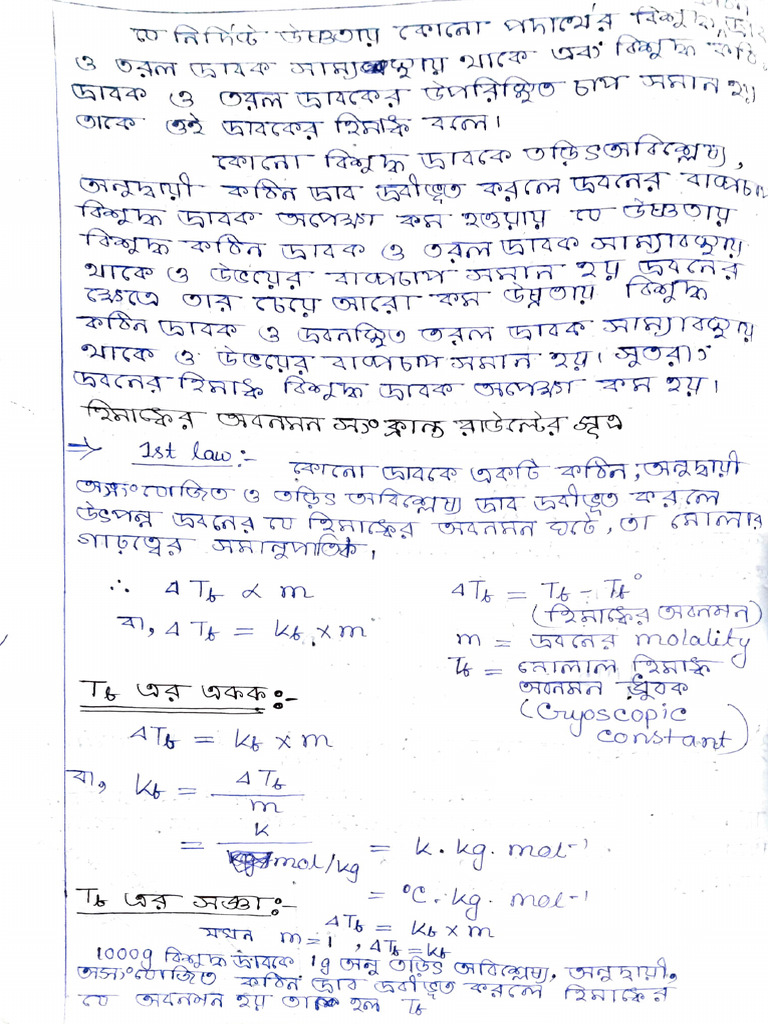 যে নির্দিষ্ট উষ্ণতায় কোনো পদার্থের বিশুদ্ধ
ও তরল দ্রাবক সাম্যাবস্থায় থাকে এবং বিশুদ্ধ কঠিন
দ্রাবক ও তরল দ্রাবকের উপরিস্থিত চাপ সমান হয়।
তাকে ওই দ্রাবকের হিমাঙ্ক বলে।
কোনো বিশুদ্ধ দ্রাবকে তড়িৎঅবিশ্লেষ্য,
অনুদ্বায়ী কঠিন দ্রাব দ্রবীভূত করলে দ্রবনের বাষ্পচাপ
বিশুদ্ধ দ্রাবক অপেক্ষা কম হওয়ায় যে উষ্ণতায়
বিশুদ্ধ কঠিন দ্রাবক ও তরল দ্রাবক সাম্যাবস্থায়
থাকে ও উভয়ের বাষ্পচাপ সমান হয় দ্রবনের
ক্ষেত্রে তার চেয়ে আরো কম উষ্ণতায় বিশুদ্ধ
কঠিন দ্রাবক ও দ্রবনস্থিত তরল দ্রাবক সাম্যাবস্থায়
থাকে ও উভয়ের বাষ্পচাপ সমান হয়। সুতরাং
দ্রবনের হিমাঙ্ক বিশুদ্ধ দ্রাবক অপেক্ষা কম হয়।
হিমাঙ্কের অবনমন সংক্রান্ত রাউল্টের সূত্র
⇒ 1st law :- কোনো দ্রাবকে একটি কঠিন, অনুদ্বায়ী
অসংযোজিত ও তড়িৎ অবিশ্লেষ্য দ্রাব দ্রবীভূত করলে
উৎপন্ন দ্রবনের যে হিমাঙ্কের অবনমন ঘটে, তা মোলার
গাঢ়ত্বের সমানুপাতিক।
∴ ΔTf α m
ΔTf = Tf - Tf°
(হিমাঙ্কের অবনমন)
বা, ΔTf = kf × m
m = দ্রবনের molality
Tf = মোলাল হিমাঙ্ক
অবনমন ধ্রুবক
(Cryoscopic
constant)
Tf এর একক :-
ΔTf = kf × m
বা, kf = ΔTf / m
= k / mol/kg = k. kg. mol⁻¹
= °C. kg. mol⁻¹
Tf এর সজ্ঞা :-
ΔTf = kf × m
যখন m = 1, ΔTf = kf
1000g বিশুদ্ধ দ্রাবকে 1g অনু তড়িৎ অবিশ্লেষ্য, অনুদ্বায়ী,
অসংযোজিত কঠিন দ্রাব দ্রবীভূত করলে হিমাঙ্কের
যে অবনমন হয় তা হল Tf